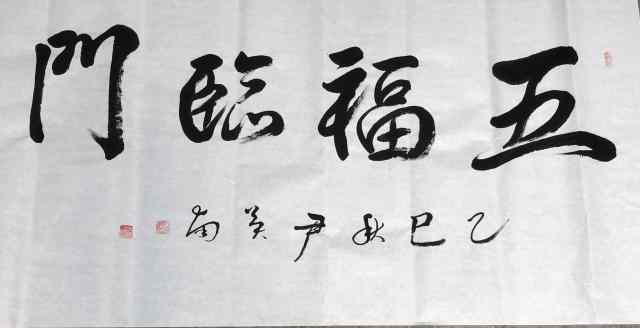 五福臨門
乙巳秋尹英南